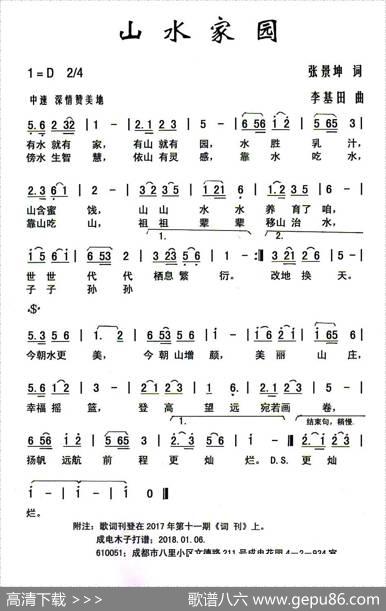 山水家园
1=D 2/4
张景坤 词
中速 深情赞美地
李基田 曲
5.6 2 32 | 1 - | 2.1 2 3 | 5 - | 6 56 1 2 | 5 65 3 |
有水就有 家，有山就有 园，水 胜 乳 汁，
傍水生智 慧，依山有灵 感，靠 水 吃 水，
2.3 6 1 | 2 - | 3 2 3 5 | 1 21 6 |
山含蜜 饯，山 山 水 水 养 育了 咱，
靠山吃 山，祖 祖 辈 辈 移山治 水，
1. 2.
1 5 6 | 6 53 2 | 3 2 35 | 1 - :|| 3 2 1 6 | 5 - |
世 世 代 代 栖息繁 衍。 改地 换 天。
子 子 孙 孙
𝄋
5.3 5 6 | 1. 2 | 1 6 53 5 | 2 - | 1 2 | 1 65 6 |
今朝水更 美，今 朝山增 颜，美 丽 山 庄，
5.6 2 1 | 2 - | 2 3 | 1 6. | 2.1 2 3 | 5 - |
幸福摇 篮，登 高 望 远 宛若画 卷，
1. 结束句，稍慢。
6 56 1 2 | 5 65 3 | 2.3 5 | 1 - :|| 2. 1 | 2 3 |
扬帆 远航 前 程 更 灿 烂。D.S. 更 灿
1 - | 1 - | 1 0 ||
烂。
附注：歌词刊登在2017年第十一期《词 刊》上。
成电木子打谱：2018.01.06.
610051；成都市八里小区文德路211号成电花园4-2-934室
高清下载 >>>
歌谱八六 www.gepu86.com